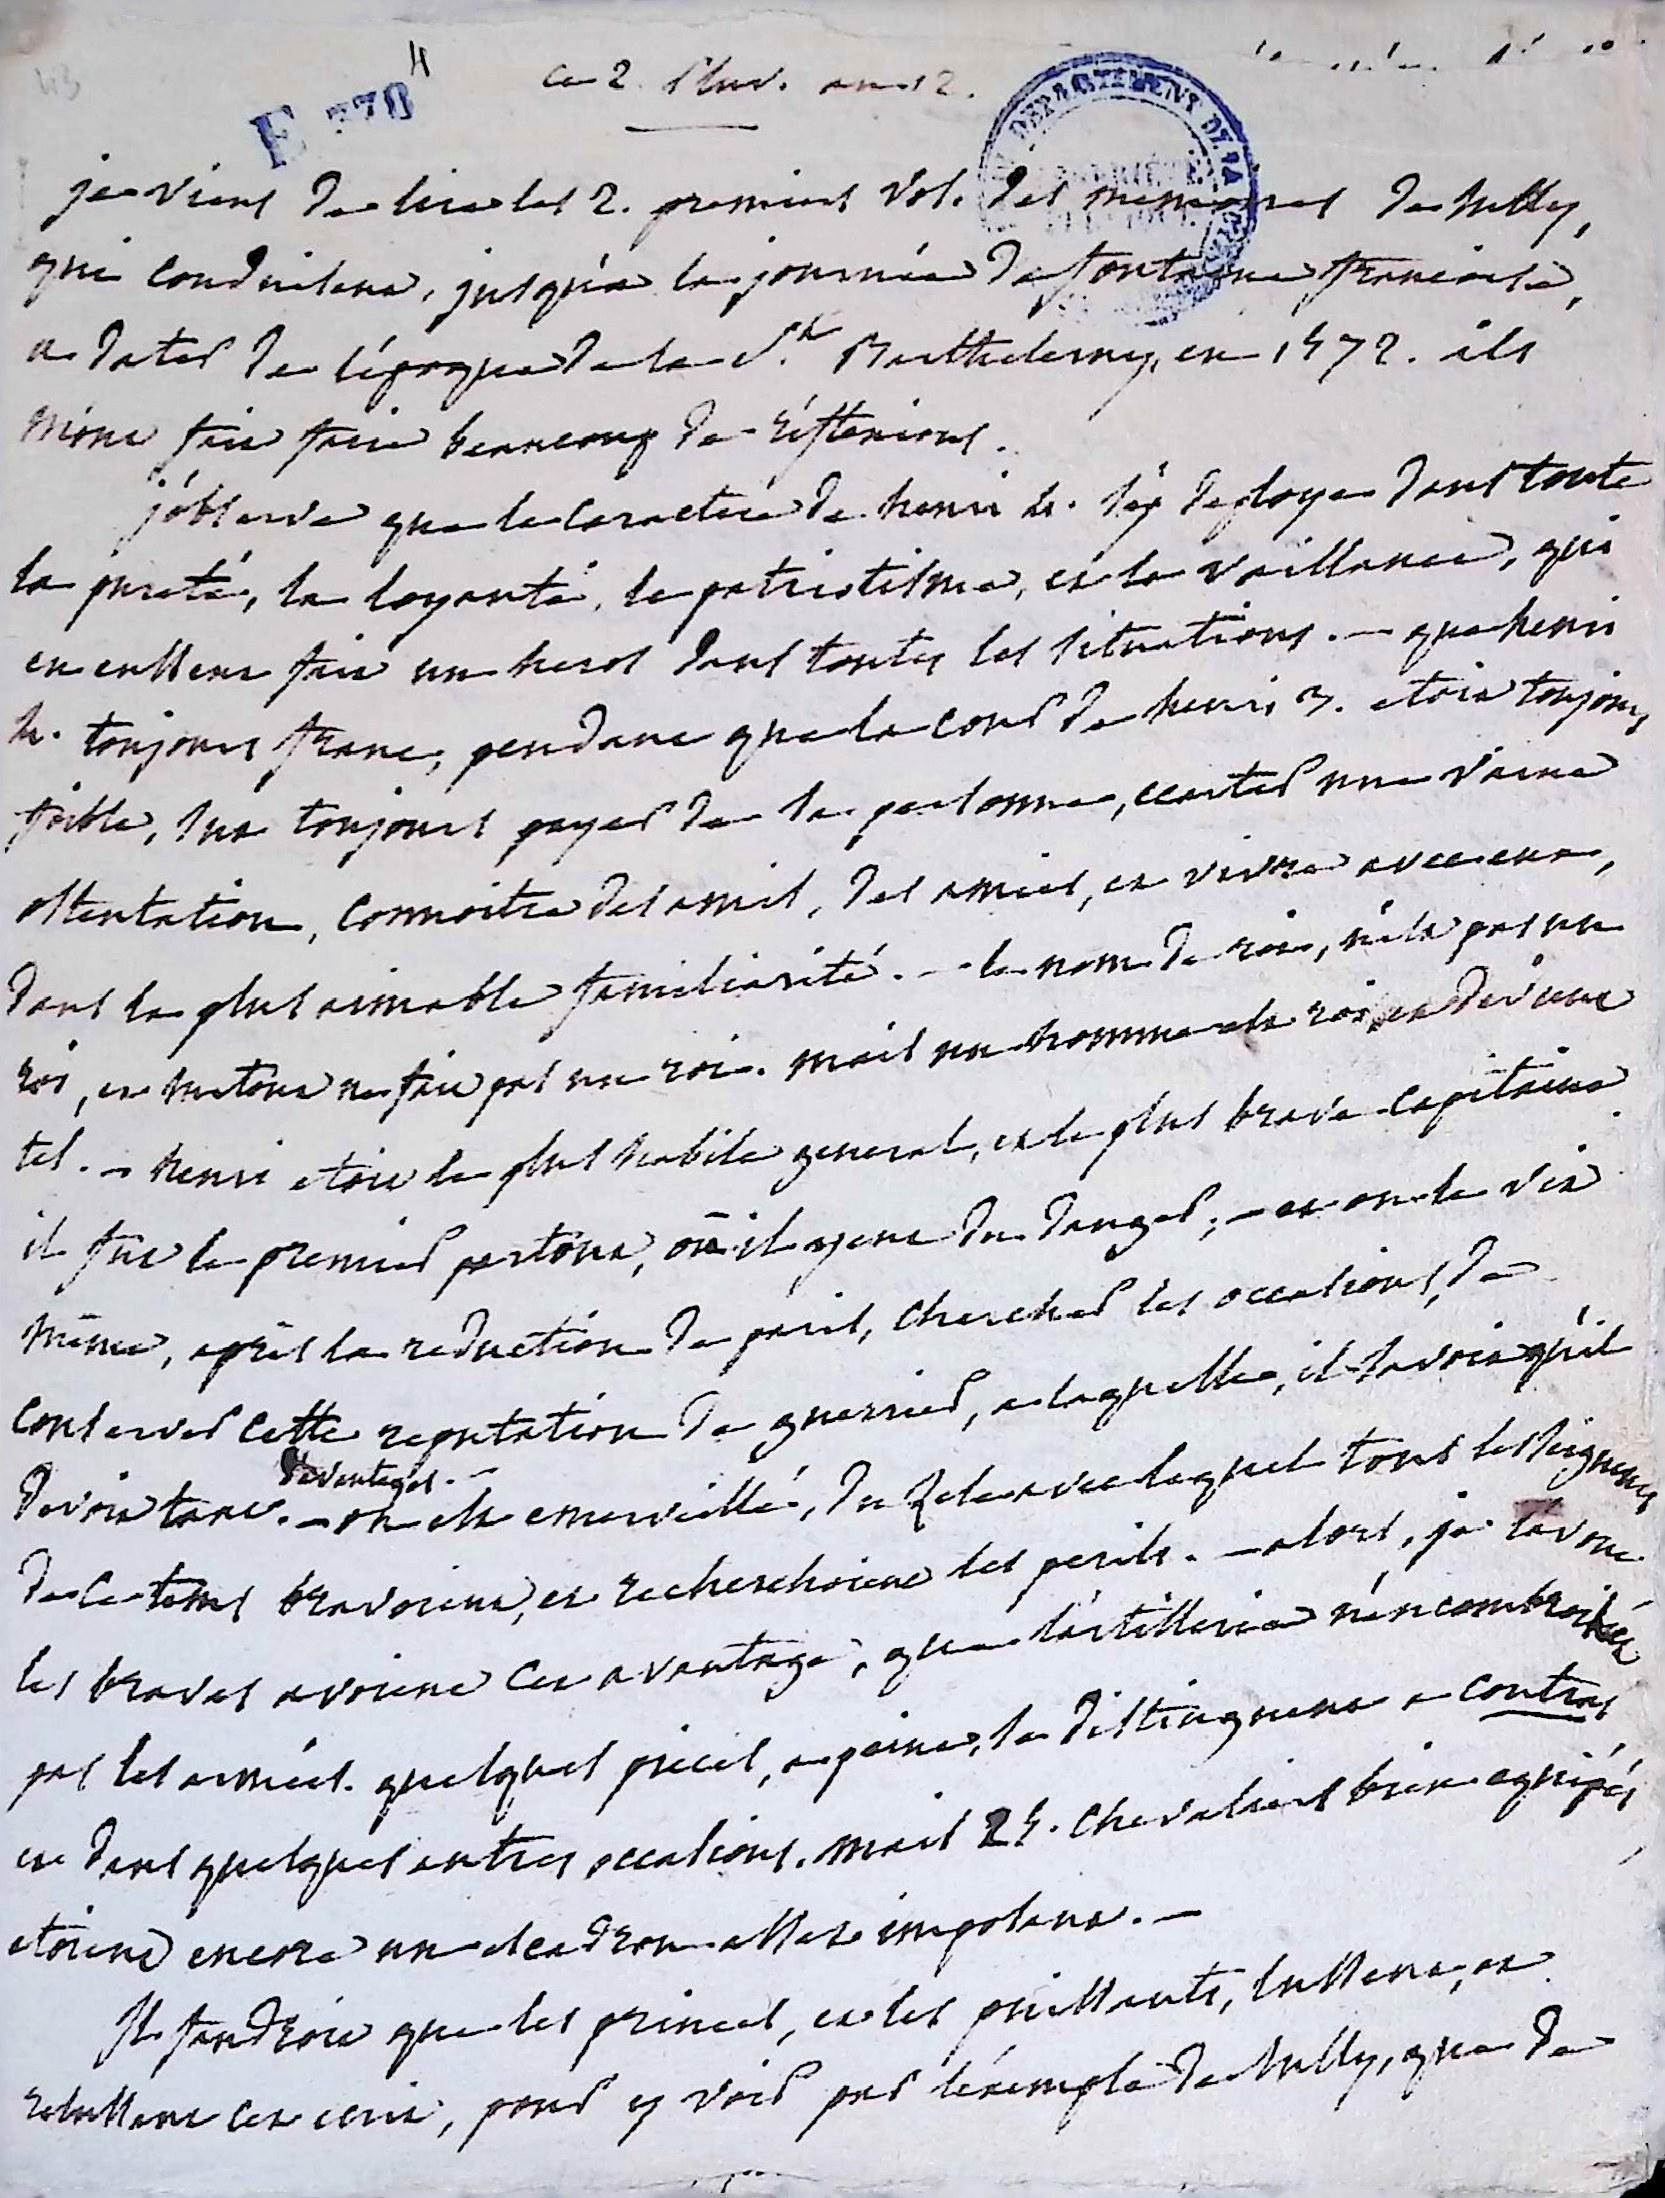 43
E 378 4
ce 2. Pluv. an 12.
DÉPARTEMENT DE LA
je viens de lire les 2. premiers vol. des memoires de Sully,
qui conduisent, jusqu'a la journée de fontaine françoise,
a dater de l'époque de la St. Barthelemy, en 1572. ils
m'ont fait faire beaucoup de réflexions.
j'observe que le caractere de henri 4. s'est deployé dans toute
la pureté, la loyauté, le patriotisme, et la vaillance, qui
en eussent fait un heros dans toutes les situations. — que henri
4. toujours franc, pendant que la cour de henri 3. etoit toujours
foible, sut toujours payer de sa personne, ecarter une vaine
ostentation, connoitre des amis, des amies, et vivre avec eux,
dans la plus aimable familiarité. — le nom de roi, n'est pas un
roi, et surtout ne fait pas un roi. mais un homme est roi, et devient
tel. — henri etoit le plus habile general, et le plus brave capitaine
il fut le premier partout, où il y eut du danger; — et on le vit
même, après la reduction de paris, chercher les occasions, de
conserver cette reputation de guerrier, a laquelle, il savoit qu'il
davantages. —
devoit tant. — on est emerveillé, du zele avec lequel tous les seigneurs
de ce tems bravoient, et recherchoient les perils. — alors, je l'avoue
les braves avoient cet avantage, que l'artillerie n'encombroit
pas les armées. quelques pieces, a peine, se distinguent a Coutras
et dans quelques autres occasions. mais 25. chevaliers bien equipés,
etoient encore un escadron assez imposant. —
Il faudroit que les princes, et les puissants, lussent, et
relussent cet ecrit, pour y voir par l'exemple de Sully, que de